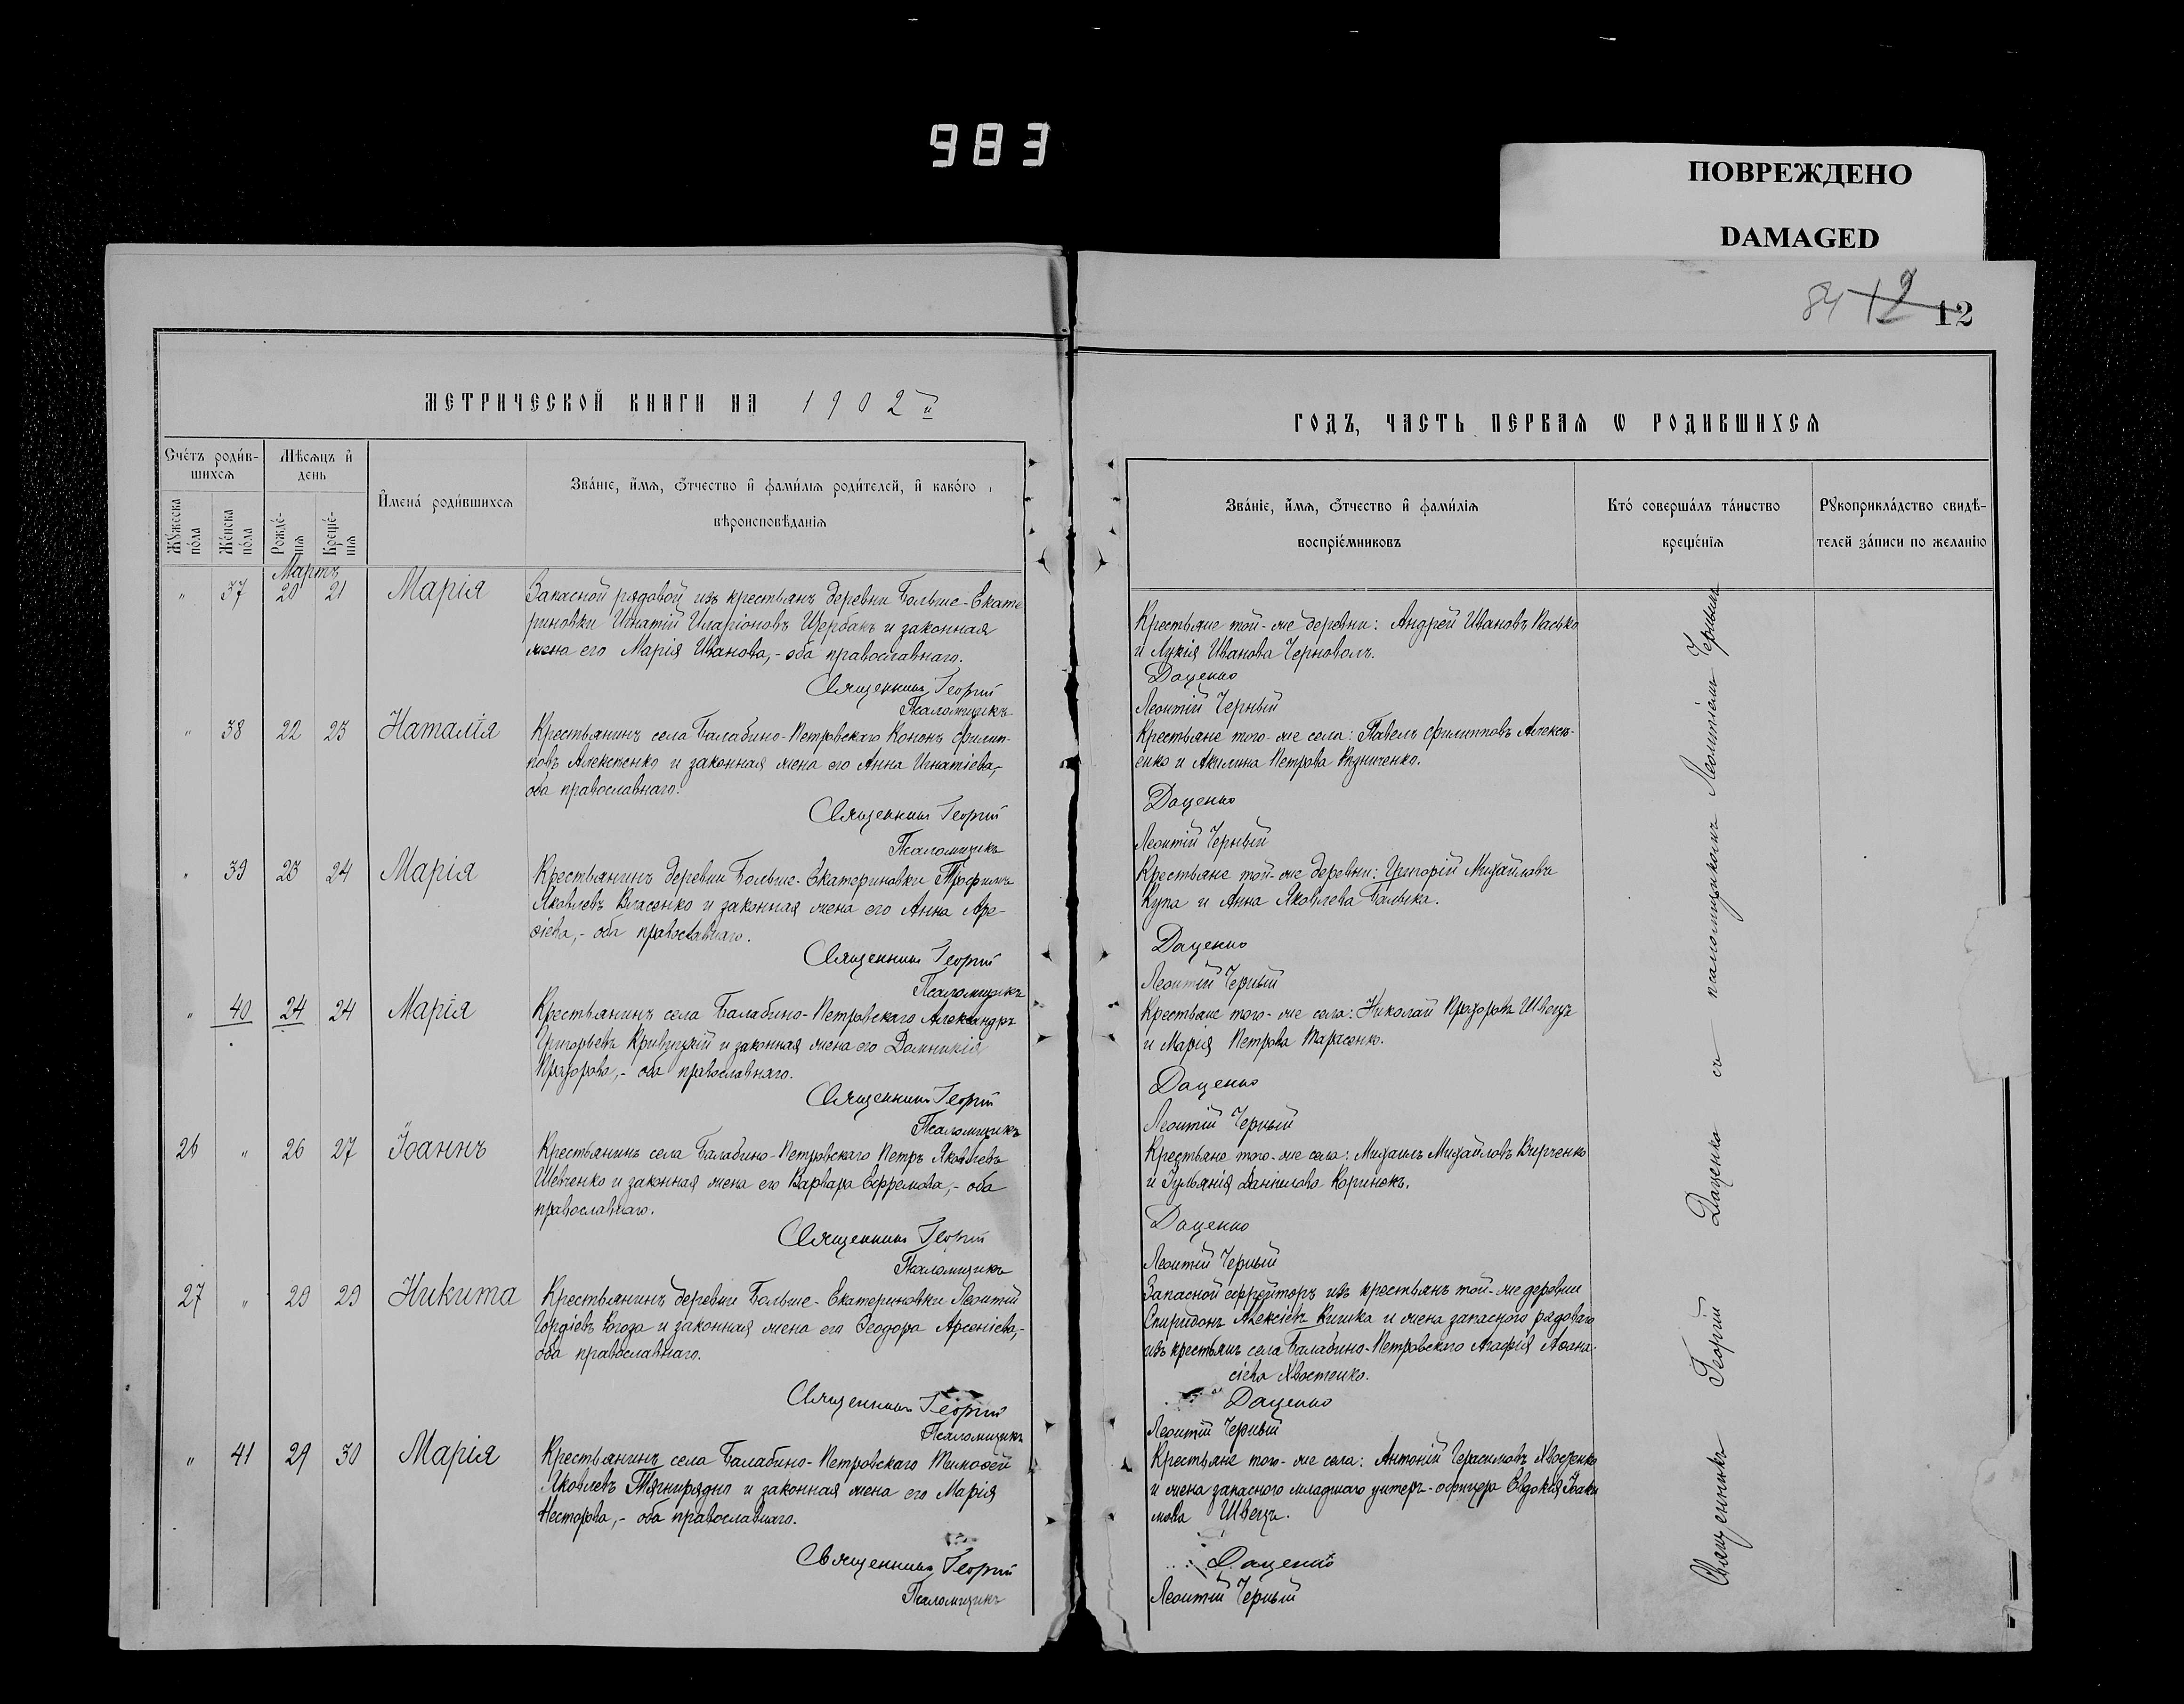 983
ПОВРЕЖДЕНО
DAMAGED
84 12
12
МЕТРИЧЕСКОЙ КНИГИ НА 1902й
Счетъ родив-
шихся
Мѣсяцъ и
день
Мужеска
пола
Женска
пола
Рожде-
нія
Креще-
нія
Имена родившихся
Званіе, имя, отчество и фамилія родителей, и какого
вѣроисповѣданія
Мартъ
" 37 20 21 Марія
Запасной рядовой изъ крестьянъ деревни Больше-Екате
риновки Игнатій Иларіоновъ Щербакъ и законная
жена его Марія Иванова,- оба православнаго.
Священникъ Георгій
Псаломщикъ
" 38 22 23 Наталія
Крестьянинъ села Балабино-Петровскаго Кононъ Филип-
повъ Алексѣенко и законная жена его Анна Игнатіева,-
оба православнаго.
Священникъ Георгій
Псаломщикъ
" 39 23 24 Марія
Крестьянинъ деревни Больше-Екатериновки Трофимъ
Яковлевъ Власенко и законная жена его Анна
оба православнаго.
Священникъ Георгій
Псаломщикъ
" 40 24 24 Марія
Крестьянинъ села Балабино-Петровскаго Александръ
Григорьевъ Кривицкій и законная жена его Домникія
Прохорова,- оба православнаго.
Священникъ Георгій
Псаломщикъ
26 " 26 27 Іоаннъ
Крестьянинъ села Балабино-Петровскаго Петръ Яковлевъ
Шевченко и законная жена его Варвара Ефремова,- оба
православнаго.
Священникъ Георгій
Псаломщикъ
27 " 29 29 Никита
Крестьянинъ деревни Больше-Екатериновки Леонтій
Гордіевъ Рогоза и законная жена его Ѳеодора Арсеніева,-
оба православнаго.
Священникъ Георгій
Псаломщикъ
" 41 29 30 Марія
Крестьянинъ села Балабино-Петровскаго Тимоѳей
Яковлевъ Тягнирядно и законная жена его Марія
Несторова,- оба православнаго.
Священникъ Георгій
Псаломщикъ
ГОДЪ, ЧАСТЬ ПЕРВАЯ Ѡ РОДИВШИХСЯ
Званіе, имя, отчество и фамилія
воспріемниковъ
Кто совершалъ таинство
крещенія
Рукоприкладство свидѣ-
телей записи по желанію
Крестьяне той-же деревни: Андрей Ивановъ Пасько
и Лукія Иванова Черноволъ.
Даценко
Леонтій Черный
Крестьяне того-же села: Павелъ Филипповъ Алексѣ-
енко и Акилина Петрова Рудниченко.
Даценко
Леонтій Черный
Крестьяне той-же деревни: Григорій Михайловъ
Купа и Анна Яковлева
Даценко
Леонтій Черный
Крестьяне того-же села: Николай Прохоровъ Швецъ
и Марія Петрова Тарасенко.
Даценко
Леонтій Черный
Крестьяне того-же села: Михаилъ Михайловъ Вирченко
и Іуліанія Даніилова Коринекъ.
Даценко
Леонтій Черный
Запасной ефрейторъ изъ крестьянъ той-же деревни
Спиридонъ Алексіевъ Кишка и жена запасного рядового
изъ крестьянъ села Балабино-Петровскаго Агафія Аѳана-
сіева Хвостенко.
Даценко
Леонтій Черный
Крестьяне того-же села: Антоній Герасимовъ Хвостенко
и жена запасного младшаго унтеръ-офицера Евдокія Іоаки
мова Швецъ.
Даценко
Леонтій Черный
Священникъ Георгій Даценко съ псаломщикомъ Леонтіемъ Чернымъ